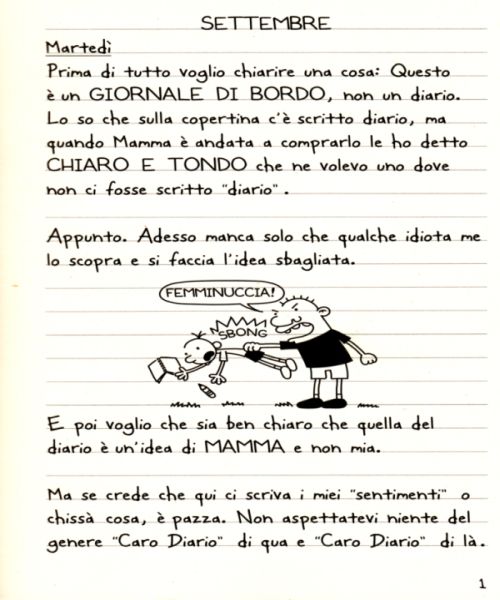 SETTEMBRE
Martedì
Prima di tutto voglio chiarire una cosa: Questo
è un GIORNALE DI BORDO, non un diario.
Lo so che sulla copertina c'è scritto diario, ma
quando Mamma è andata a comprarlo le ho detto
CHIARO E TONDO che ne volevo uno dove
non ci fosse scritto "diario".
Appunto. Adesso manca solo che qualche idiota me
lo scopra e si faccia l'idea sbagliata.
FEMMINUCCIA!
SBONG
E poi voglio che sia ben chiaro che quella del
diario è un'idea di MAMMA e non mia.
Ma se crede che qui ci scriva i miei "sentimenti" o
chissà cosa, è pazza. Non aspettatevi niente del
genere "Caro Diario" di qua e "Caro Diario" di là.
1